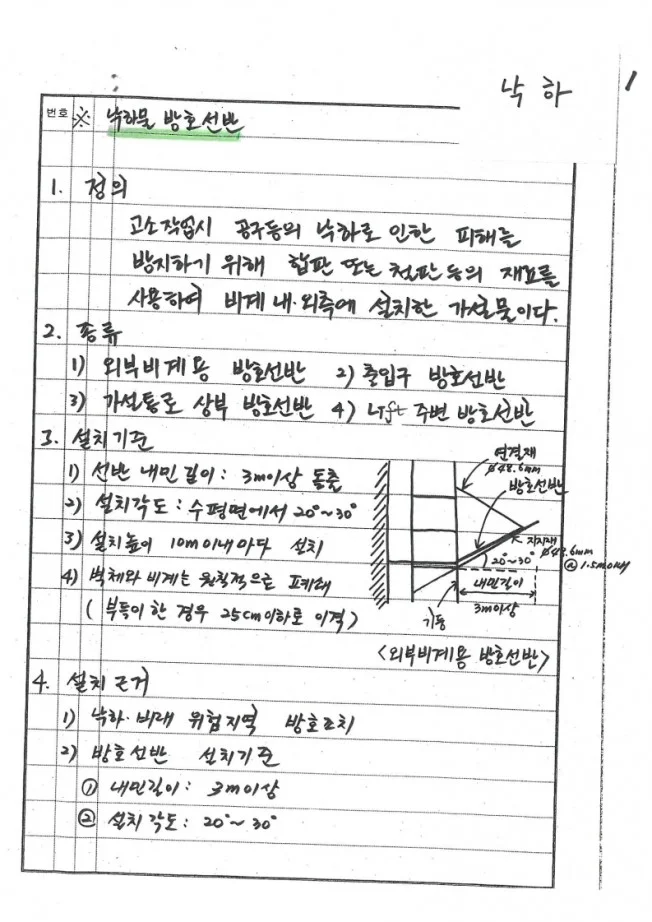 낙하 1
번호 ※ 낙하물 방호선반
1. 정의
고소작업시 공구등의 낙하로 인한 피해를
방지하기 위해 합판 또는 철판 등의 재료를
사용하여 비계 내·외측에 설치한 가설물이다.
2. 종류
1) 외부비계용 방호선반 2) 출입구 방호선반
3) 가설통로 상부 방호선반 4) Lift 주변 방호선반
3. 설치기준
1) 선반 내민길이: 3m이상 돌출
2) 설치각도: 수평면에서 20°~30°
3) 설치높이 10m이내마다 설치
4) 벽체와 비계는 원칙적으로 폐쇄
(부득이 한 경우 25cm이하로 이격)
연결재
ø48.6mm
방호선반
지지재
ø48.6mm
@1.5m이내
20°~30°
내민길이
3m이상
기둥
<외부비계용 방호선반>
4. 설치근거
1) 낙하·비래 위험지역 방호조치
2) 방호선반 설치기준
① 내민길이: 3m이상
② 설치각도: 20°~30°